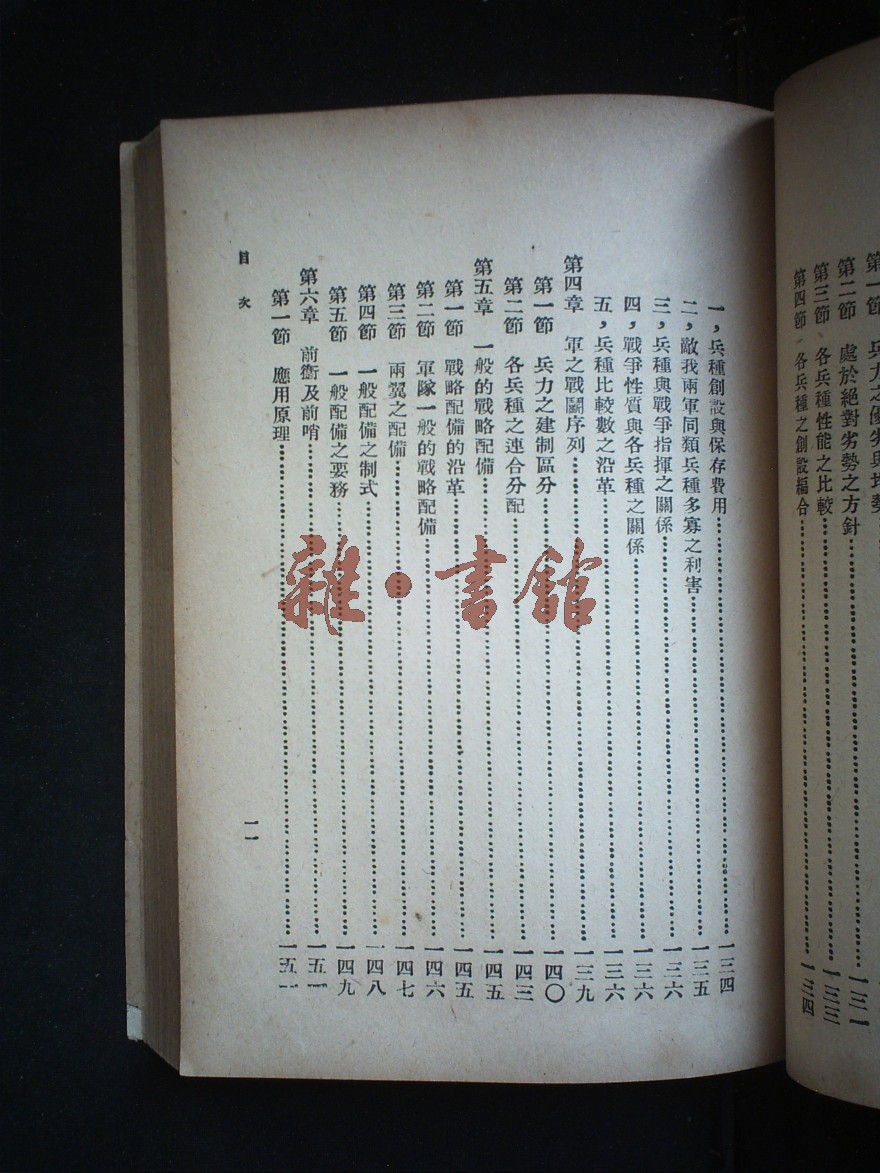 第二節　處於絕對劣勢之方針……一三一
第三節　各兵種性能之比較……一三三
第四節　各兵種之創設編合……一三四
一，兵種創設與保存費用……一三四
二，敵我兩軍同類兵種多寡之利害……一三五
三，兵種與戰爭指揮之關係……一三六
四，戰爭性質與各兵種之關係……一三六
五，兵種比較數之沿革……一三六
第四章　軍之戰鬭序列……一三九
第一節　兵力之建制區分……一四〇
第二節　各兵種之連合分配……一四三
第五章　一般的戰略配備……一四五
第一節　戰略配備的沿革……一四五
第二節　軍隊一般的戰略配備……一四六
第三節　兩翼之配備……一四七
第四節　一般配備之制式……一四八
第五節　一般配備之要務……一四九
第六章　前衞及前哨……一五一
第一節　應用原理……一五一
目次
一一
雜·書館